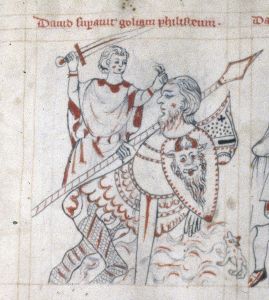 Dauid supauit goliam philisteum .
Da